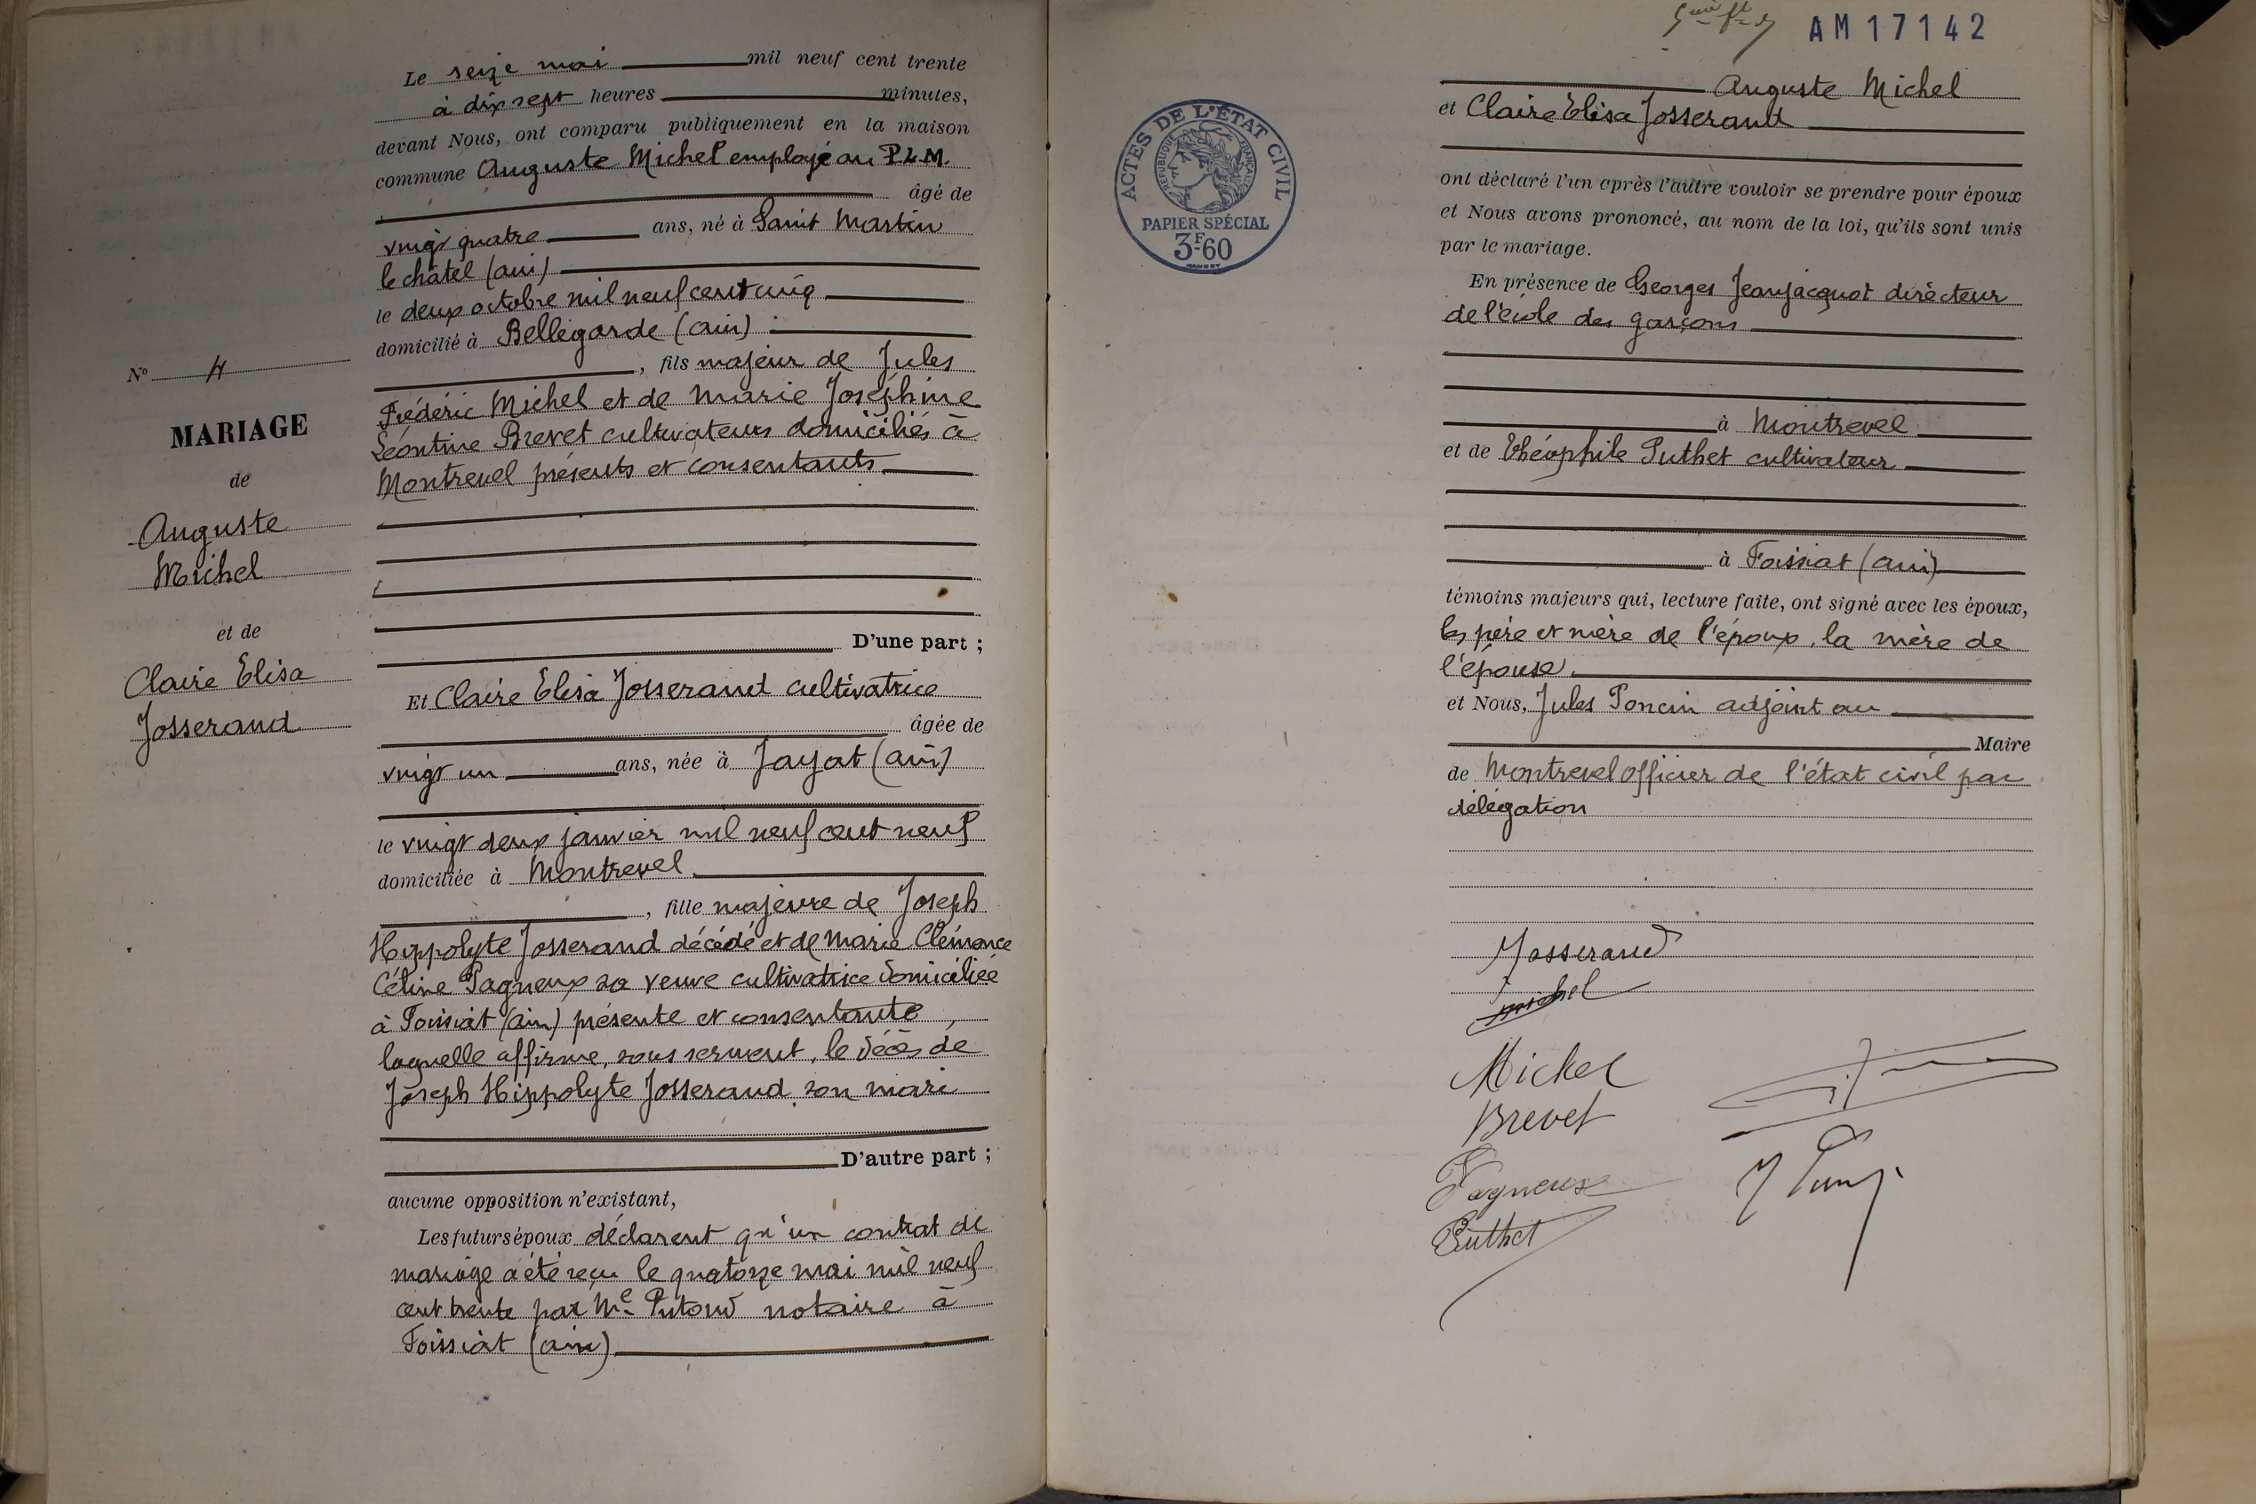 Le seize mai mil neuf cent trente
à dix sept heures minutes,
devant Nous, ont comparu publiquement en la maison
commune Auguste Michel employé au P.L.M.
âgé de
vingt quatre ans, né à Saint Martin
le châtel (ain)
le deux octobre mil neuf cent cinq
domicilié à Bellegarde (ain)
, fils majeur de Jules
Frédéric Michel et de Marie Joséphine
Léontine Brevet cultivateurs domiciliés à
Montrevel présents et consentants
D'une part ;
Et Claire Elisa Josserand cultivatrice
âgée de
vingt un ans, née à Jayat (ain)
le vingt deux janvier mil neuf cent neuf
domiciliée à Montrevel
, fille majeure de Joseph
Hippolyte Josserand décédé et de Marie Clémence
Céline Pagneux sa veuve cultivatrice domiciliée
à Foissiat (ain) présente et consentante,
laquelle affirme, sous serment, le décès de
Joseph Hippolyte Josserand son mari
D'autre part ;
aucune opposition n'existant,
Les futurs époux déclarent qu'un contrat de
mariage a été reçu le quatorze mai mil neuf
cent trente par Me Putoud notaire à
Foissiat (ain)
No 4
MARIAGE
de
Auguste
Michel
et de
Claire Elisa
Josserand
AM 17142
ACTES DE L'ÉTAT CIVIL
RÉPUBLIQUE FRANÇAISE
PAPIER SPÉCIAL
3F-60
Auguste Michel
et Claire Elisa Josserand
ont déclaré l'un après l'autre vouloir se prendre pour époux
et Nous avons prononcé, au nom de la loi, qu'ils sont unis
par le mariage.
En présence de Georges Jeanjacquot directeur
de l'école des garçons
à Montrevel
et de Théophile Puthet cultivateur
à Foissiat (ain)
témoins majeurs qui, lecture faite, ont signé avec les époux,
les père et mère de l'époux, la mère de
l'épouse.
et Nous, Jules Poncin adjoint au
Maire
de Montrevel officier de l'état civil par
délégation
Josserand
Michel
Michel
Brevet
Pagneux
Puthet